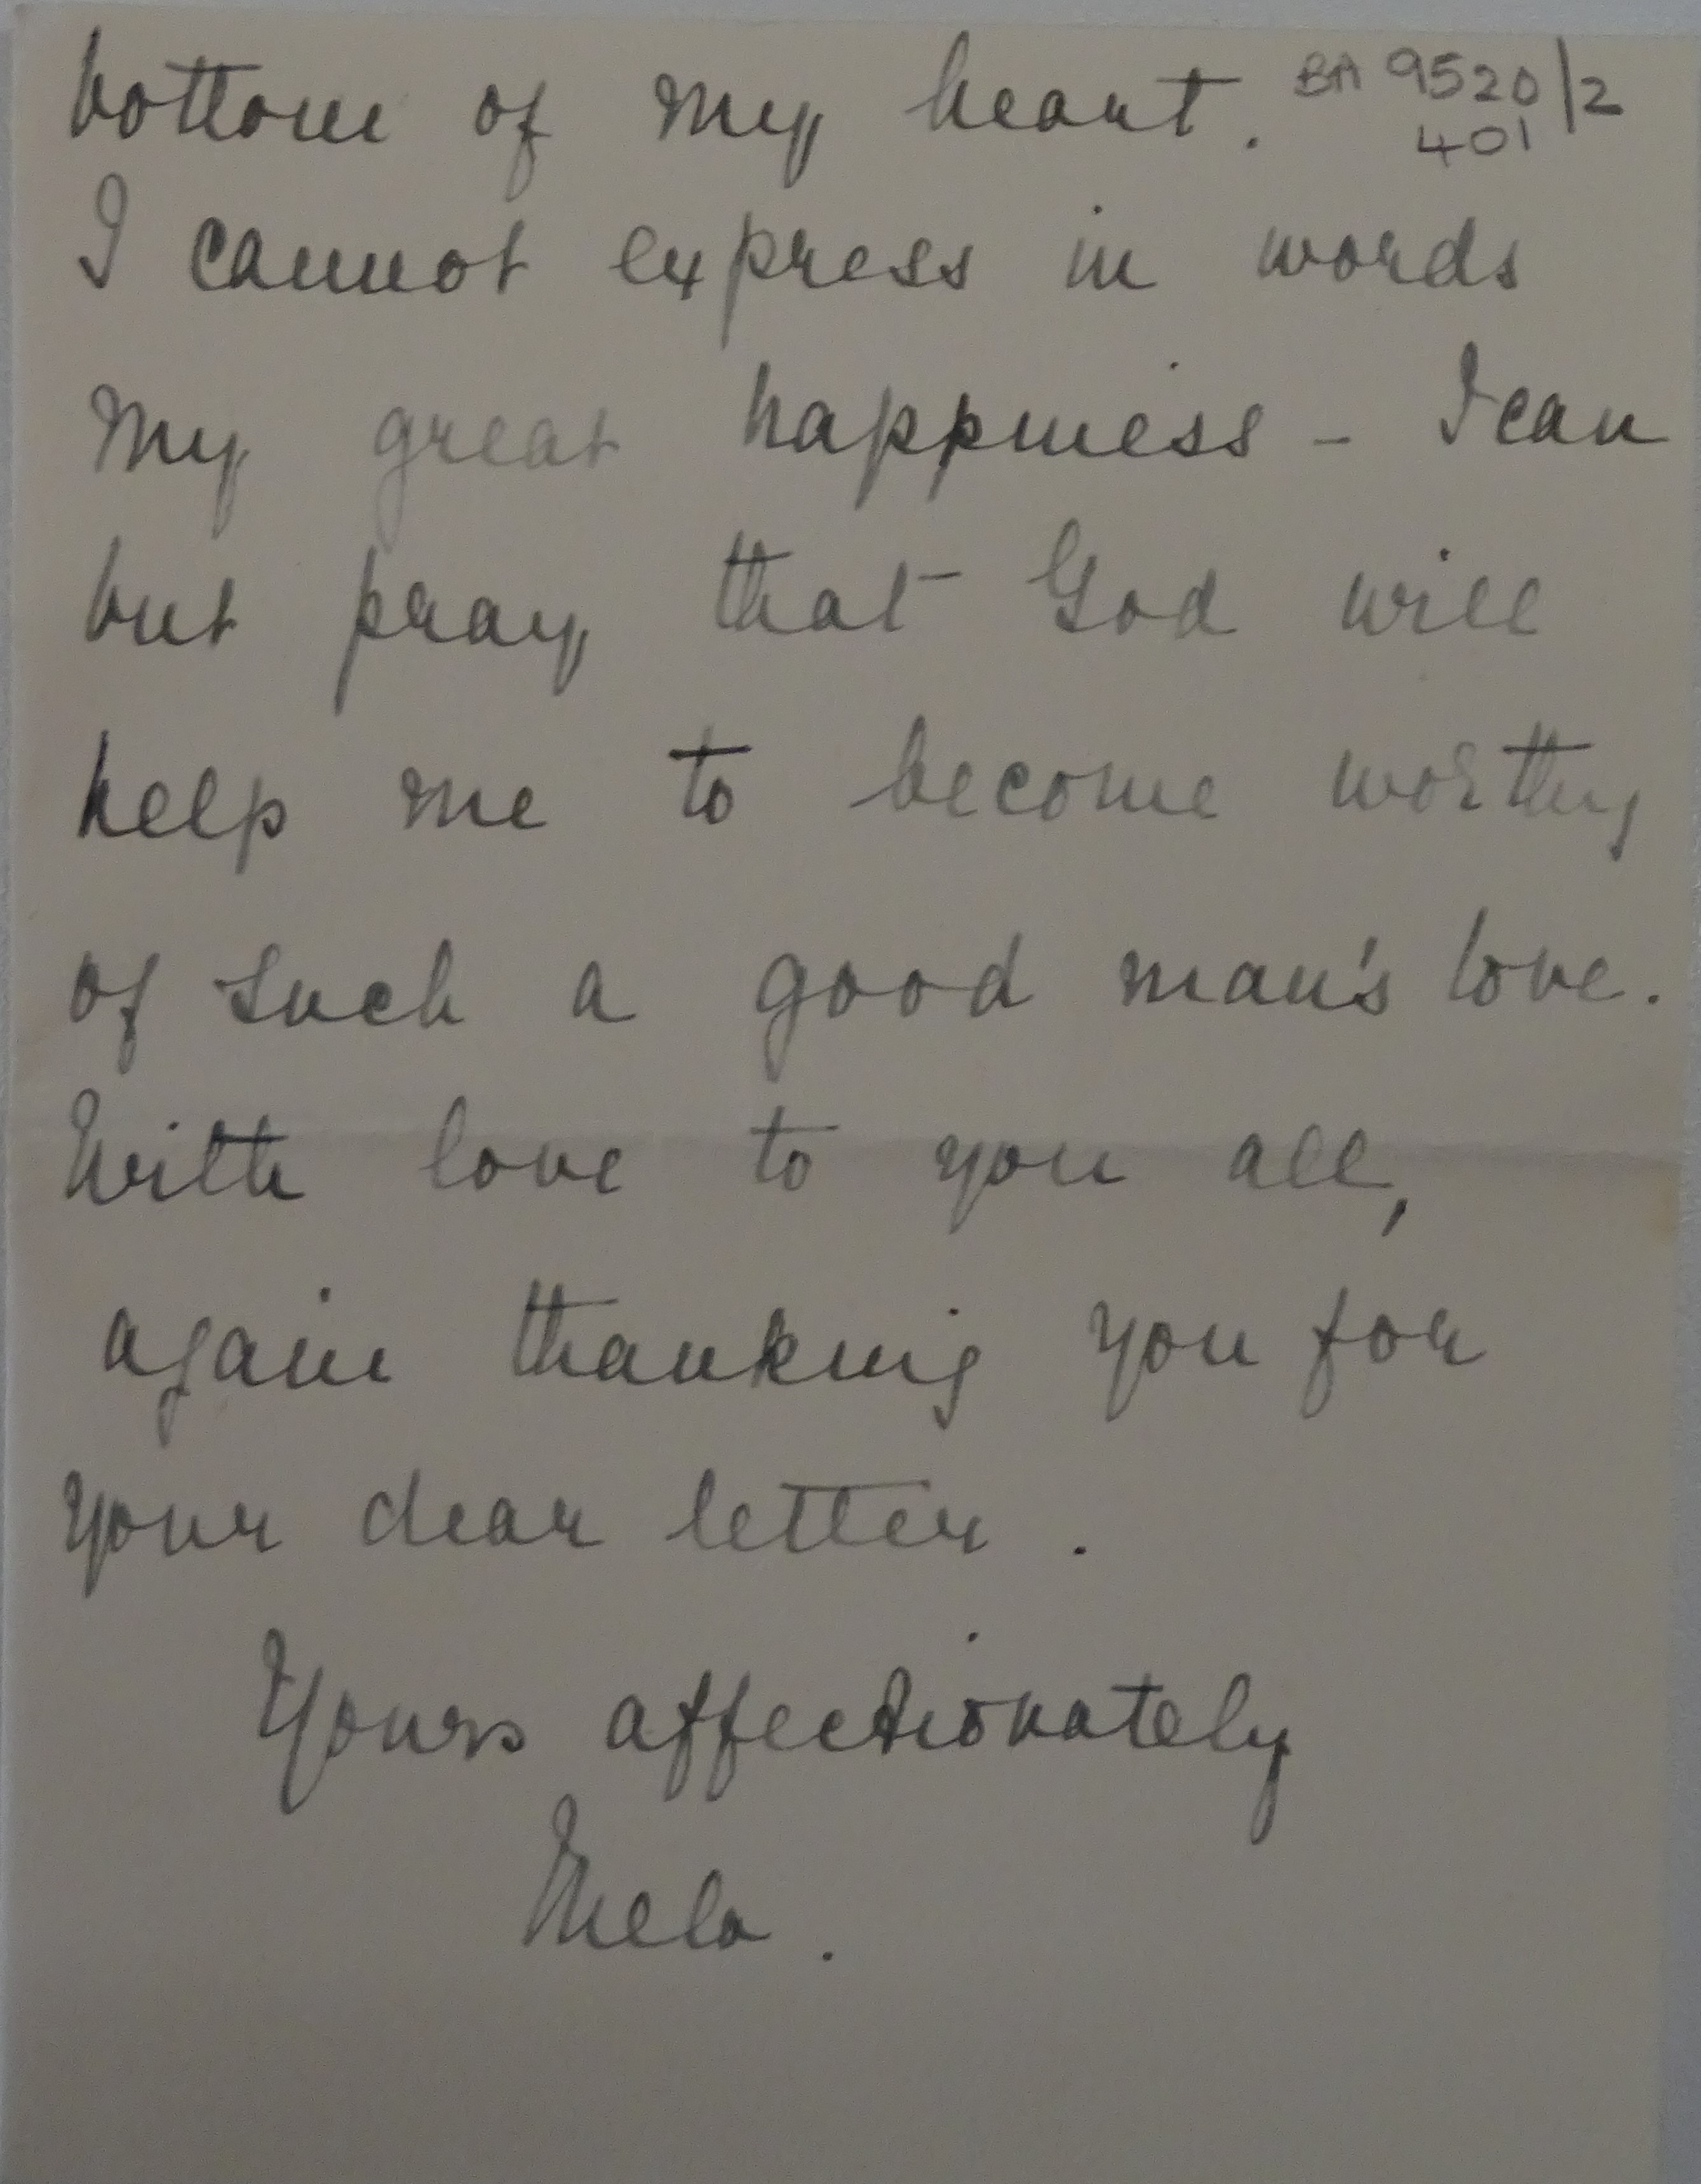 bottom of my heart. BA 9520/2
401
I cannot express in words
my great happiness - I can
but pray that God will
help me to become worthy
of such a good man's love.
With love to you all,
again thanking you for
your dear letter.
Yours affectionately
Mela.